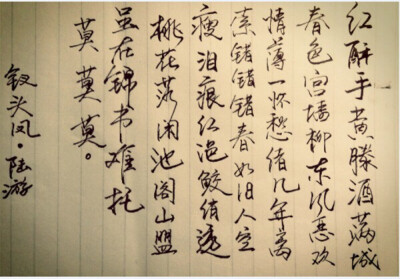 红酥手黄縢酒满城
春色宫墙柳东风恶欢
情薄一怀愁绪几年离
索错错错春如旧人空
瘦泪痕红浥鲛绡透
桃花落闲池阁山盟
虽在锦书难托
莫莫莫。
钗头凤·陆游